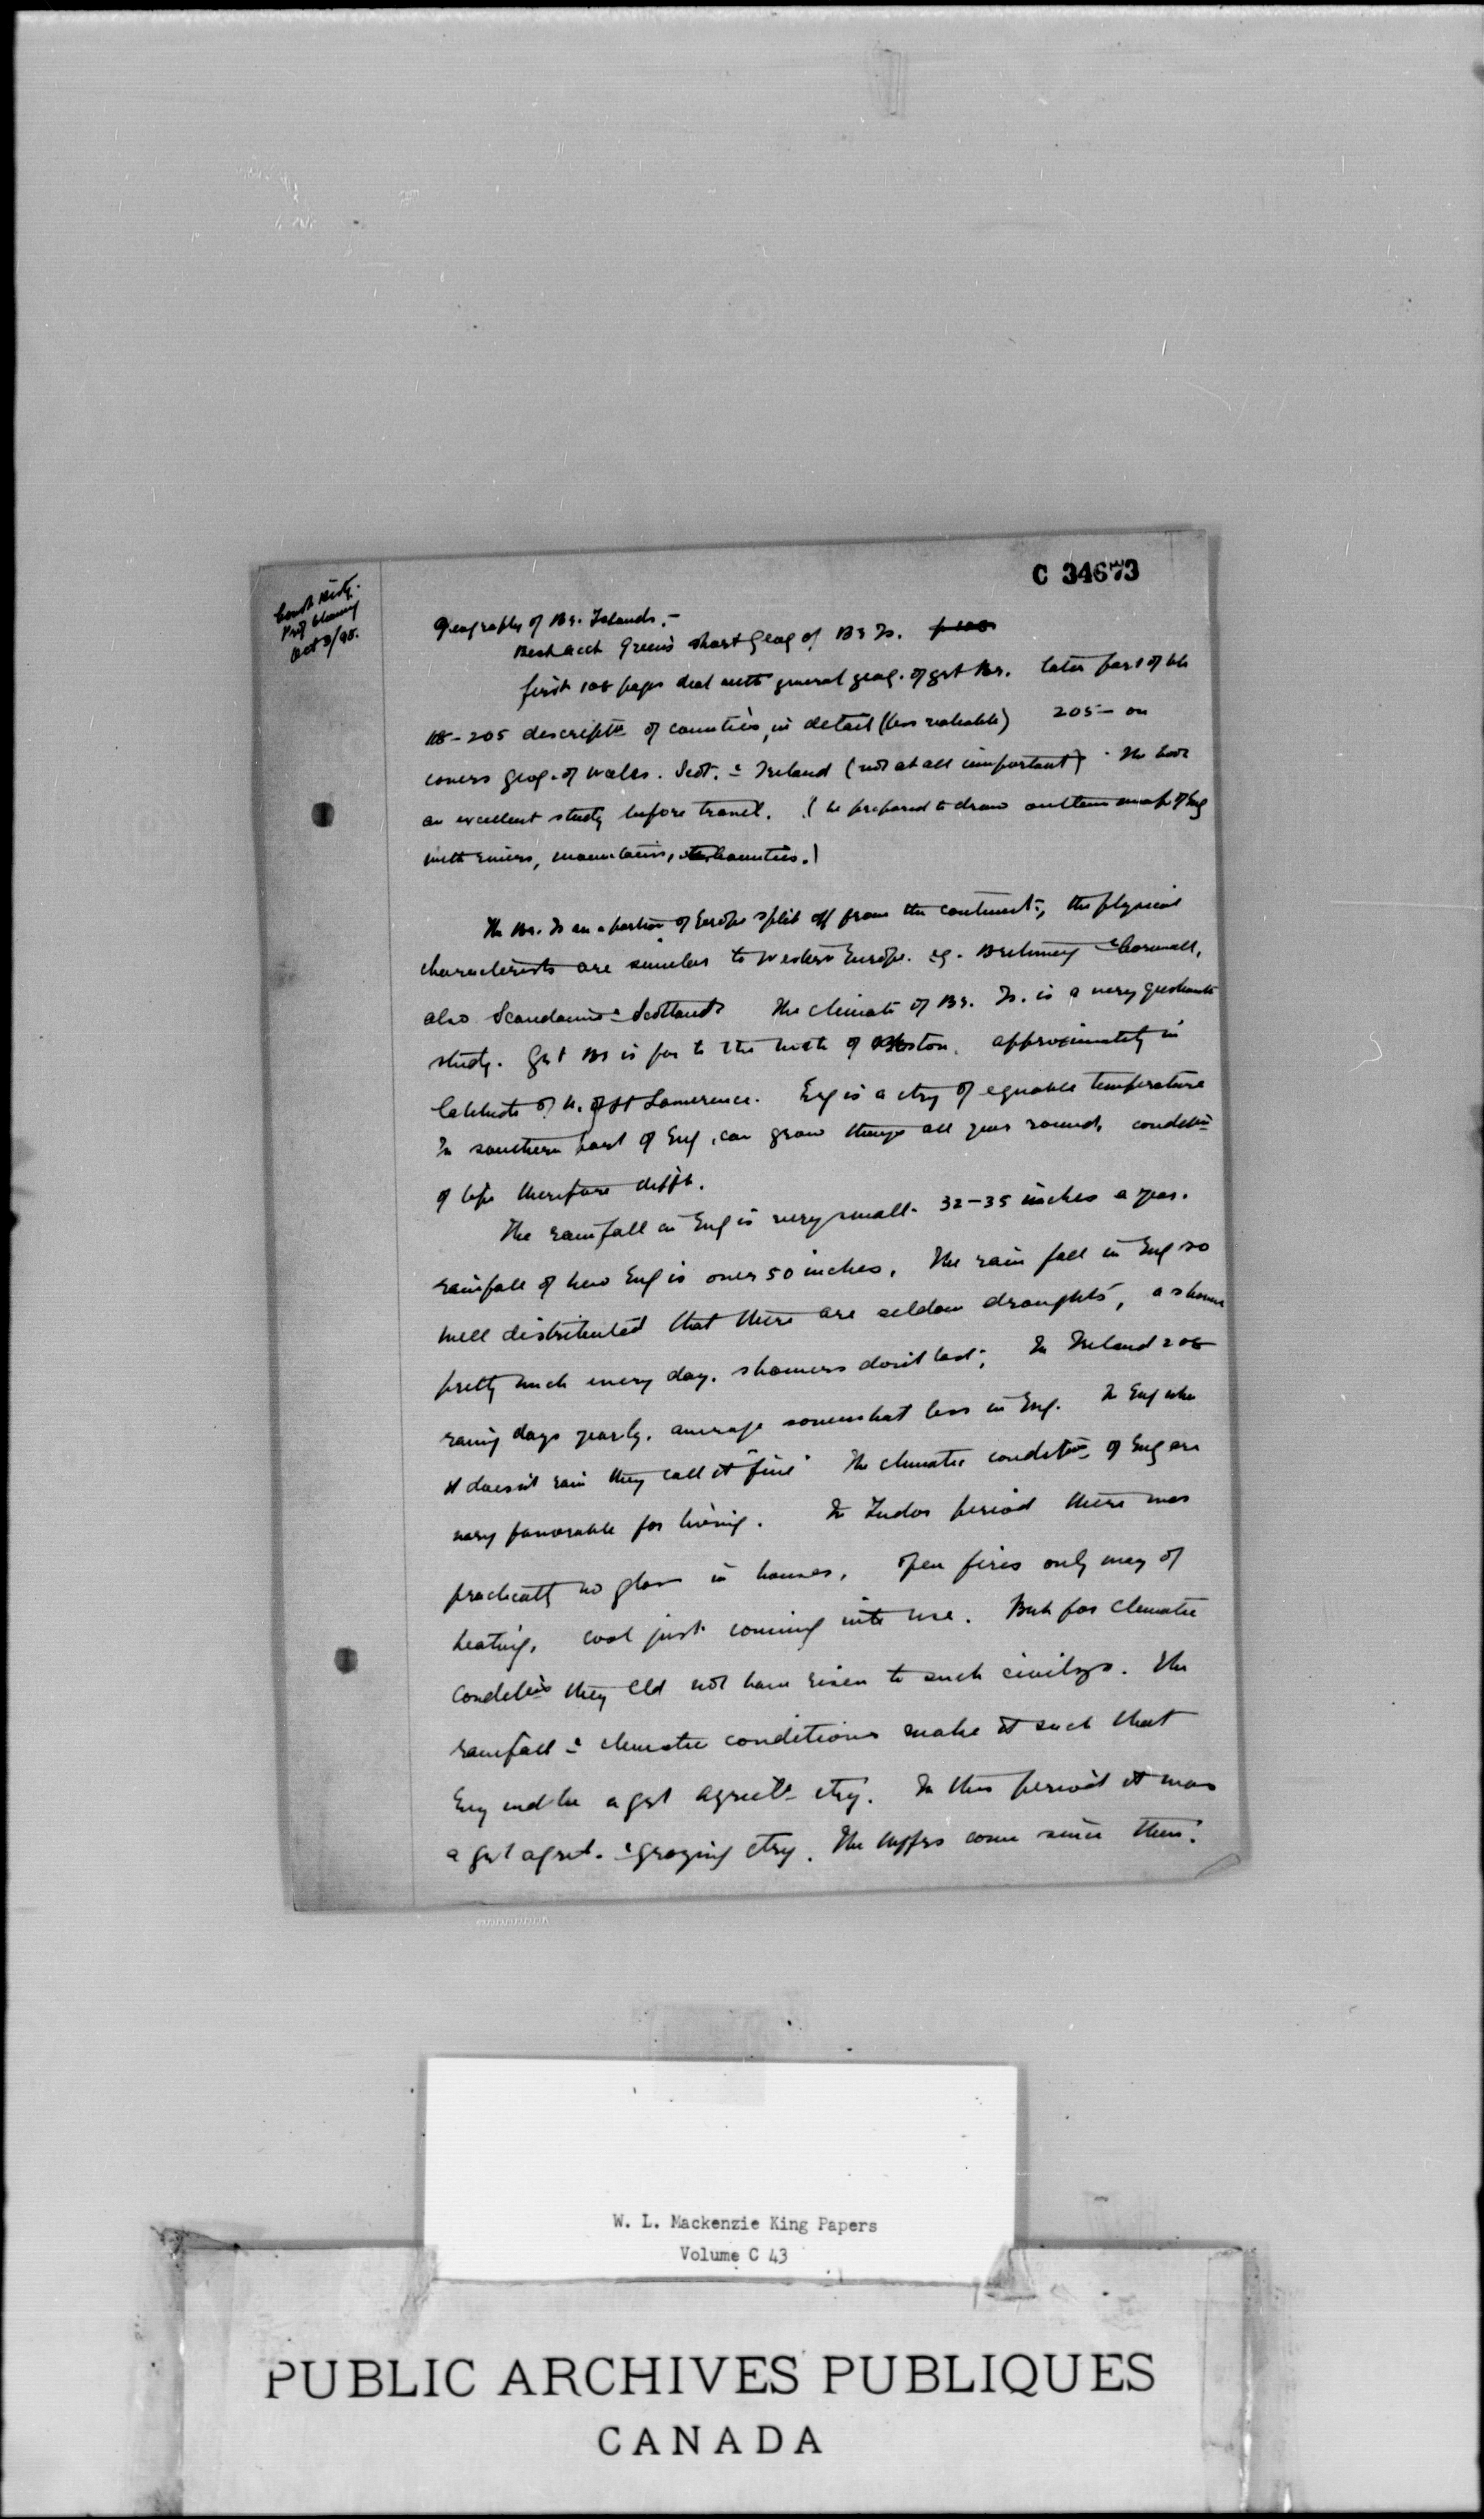 C 34673
Const. Hist.
Prof Channing
Oct 3/98.
Geography of Br. Islands. –
Best acct Green's Short Geog of Br Is.
first 108 pages deal with general geog. of grt Br. later part of bk
108 – 205 descriptn of counties, in detail (less reliable) 205 – on
covers geog. of Wales. Scot. & Ireland (not at all important) . The book
an excellent study before travel. (be prepared to draw outline map of Eng
with rivers, mountains, counties.)
The Br. Is are a portion of Europe split off from the continent, the physical
characterists are similar to western Europe. eg. Brittany & Cornwall,
also Scandanvia & Scotland The climate of Br. Is. is a very
study. Grt Br is far to the north of Boston. approximately in
latitude of G. of St Lawrence. Eng is a ctry of equable temperature
In southern part of Eng, can grow things all year round, conditns
of life therefore difft.
The rainfall in Eng is very small. 32–35 inches a year.
rainfall of New Eng is over 50 inches. The rain fall in Eng so
well distributed that there are seldom droughts, a shower
pretty much every day. showers don't last. In Ireland 208
rainy days yearly. average somewhat less in Eng. In Eng when
it doesn't rain they call it "fine" The climatic conditns of Eng are
very favorable for living. In Tudor period there was
practically no glass in houses. open fires only way of
heating. coal just coming into use. But for climatic
conditns they cld not have risen to such civilzn. The
rainfall & climatic conditions make it such that
Eng wd be a grt agricltl ctry. In this period it was
a grt agrcl. & grazing ctry. The mffrs come since then.
W. L. Mackenzie King Papers
Volume C 43
PUBLIC ARCHIVES PUBLIQUES
CANADA